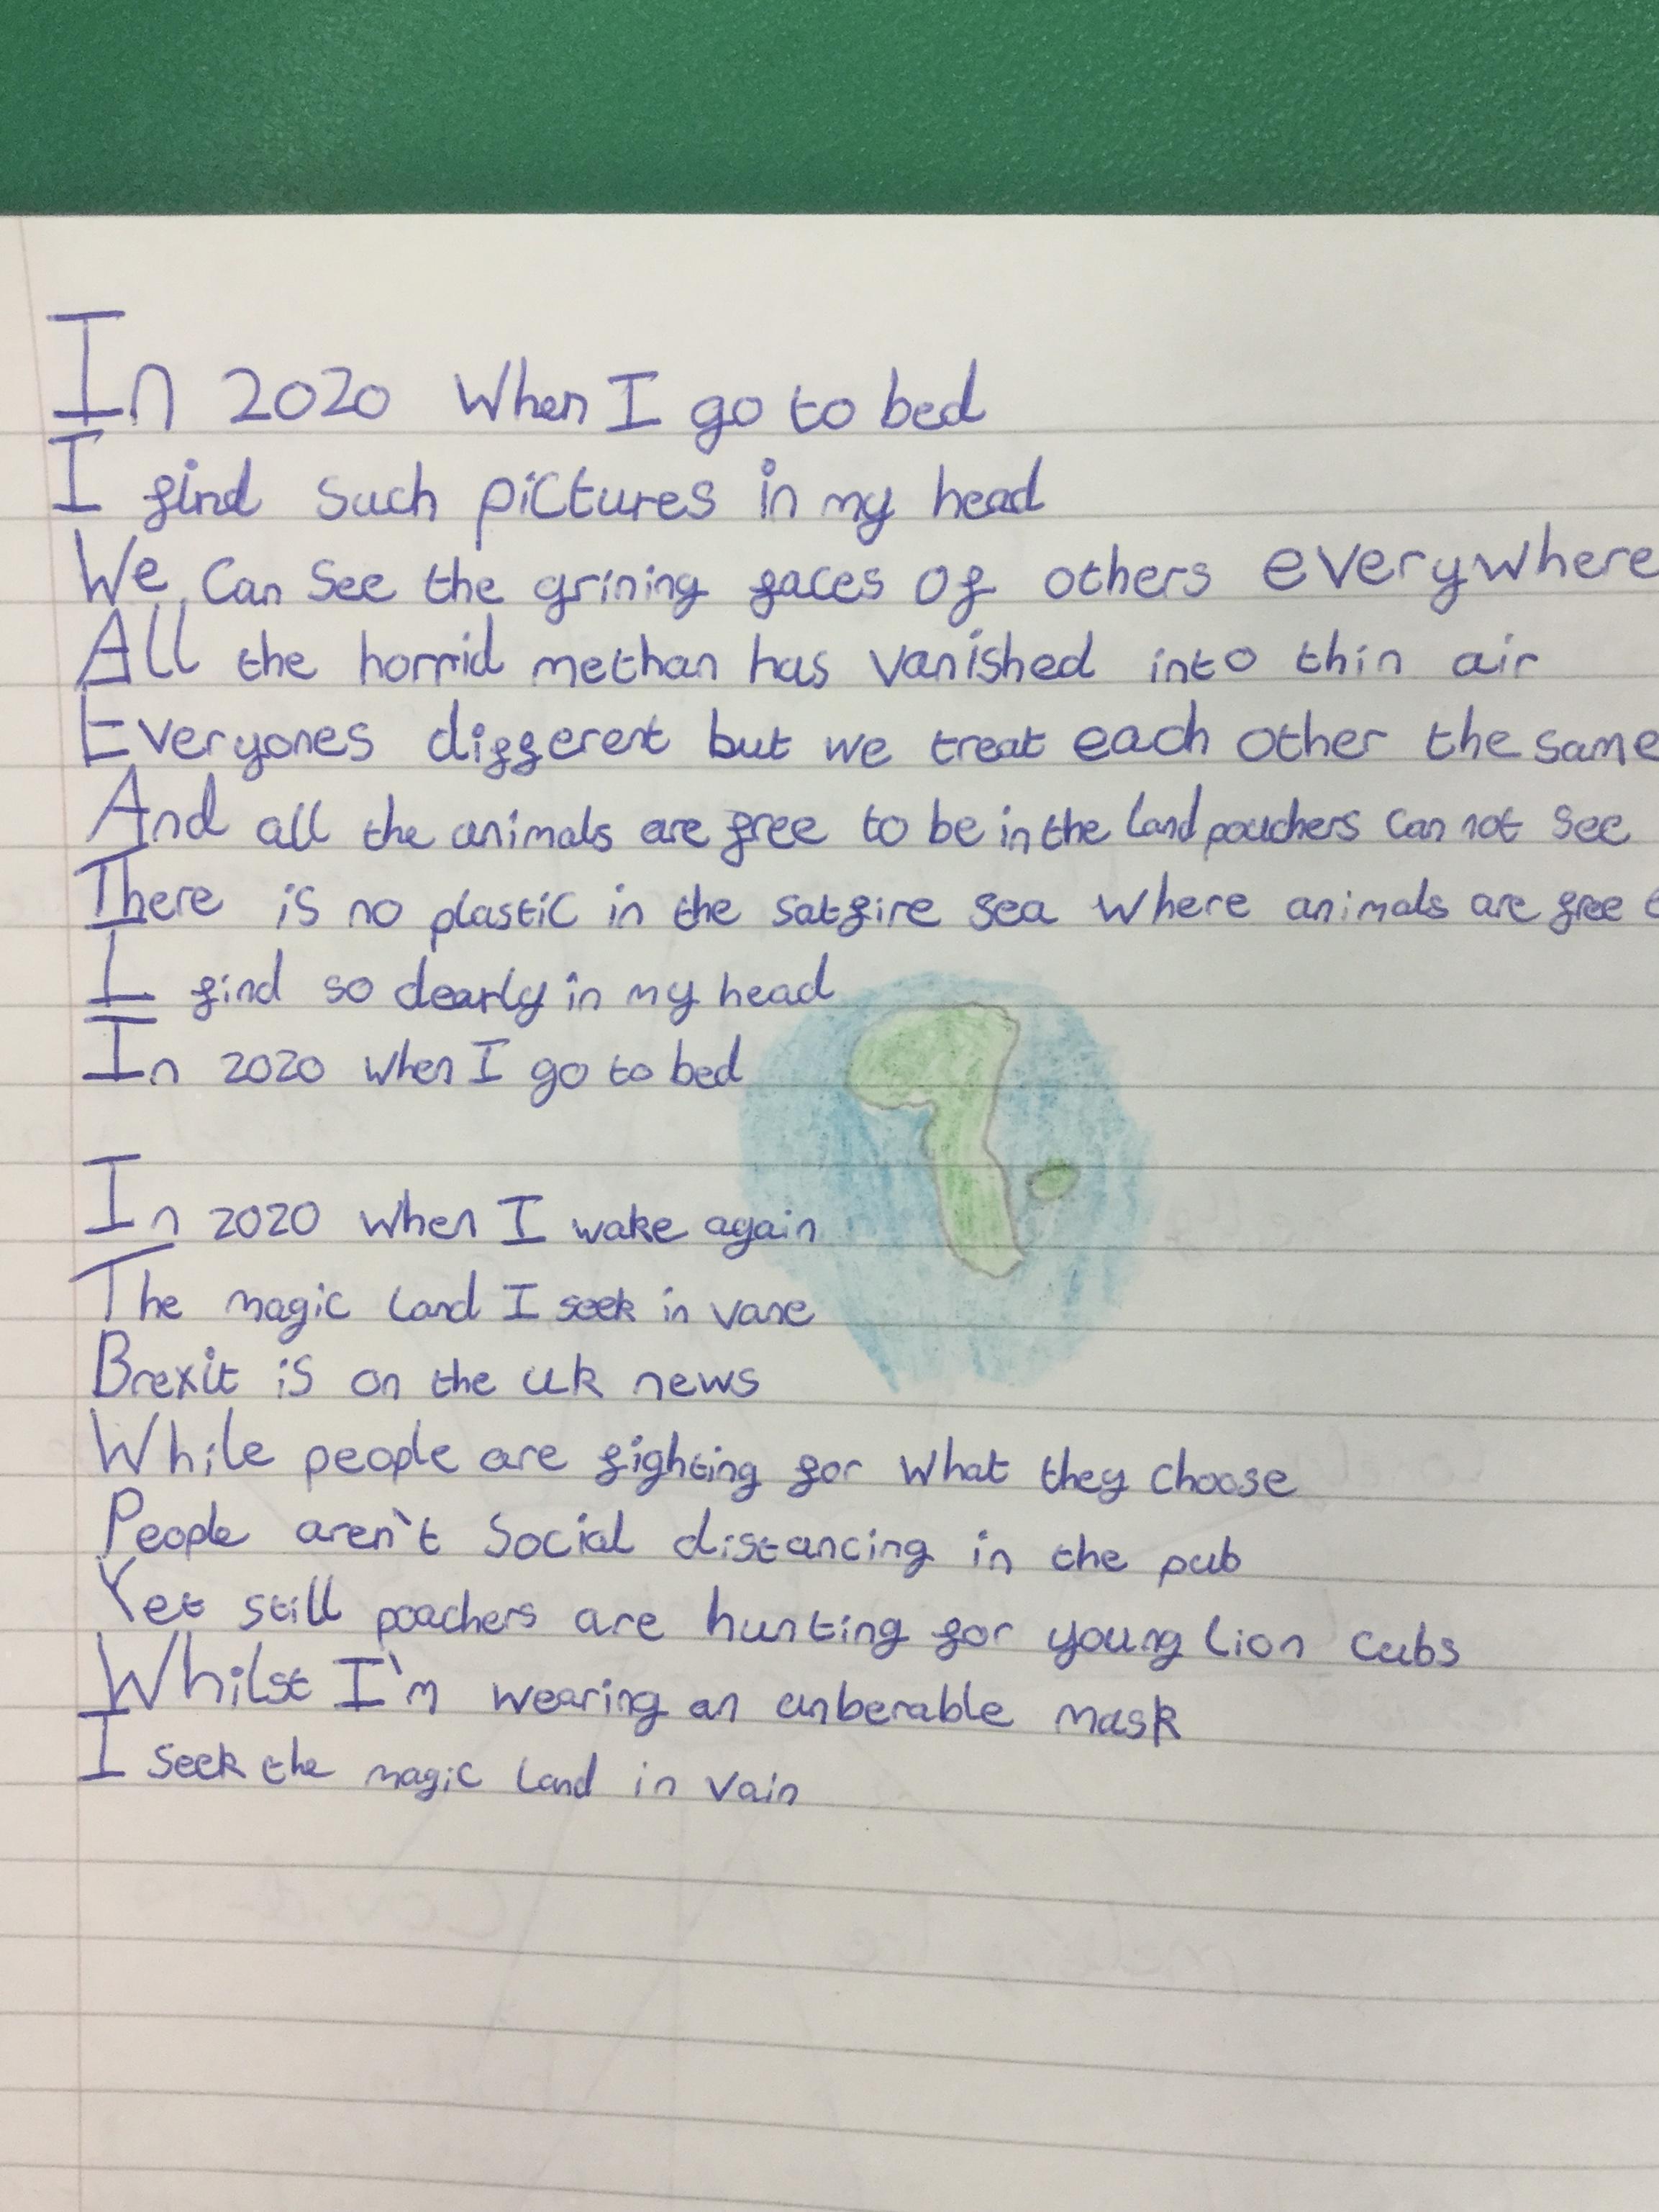 In 2020 When I go to bed
I find such pictures in my head
We Can See the grining faces of others everywhere
All the horrid methan has vanished into thin air
Everyones different but we treat each other the same
And all the animals are free to be in the land pouchers Can not See
There is no plastic in the satfire sea Where animals are free
I find so dearly in my head
In 2020 when I go to bed
In 2020 when I wake again
The magic land I seek in vane
Brexit is on the uk news
While people are fighting for what they choose
People aren't Social distancing in the pub
Yet still poachers are hunting for young lion cubs
Whilst I'm wearing an unberable mask
I Seek the magic land in vain